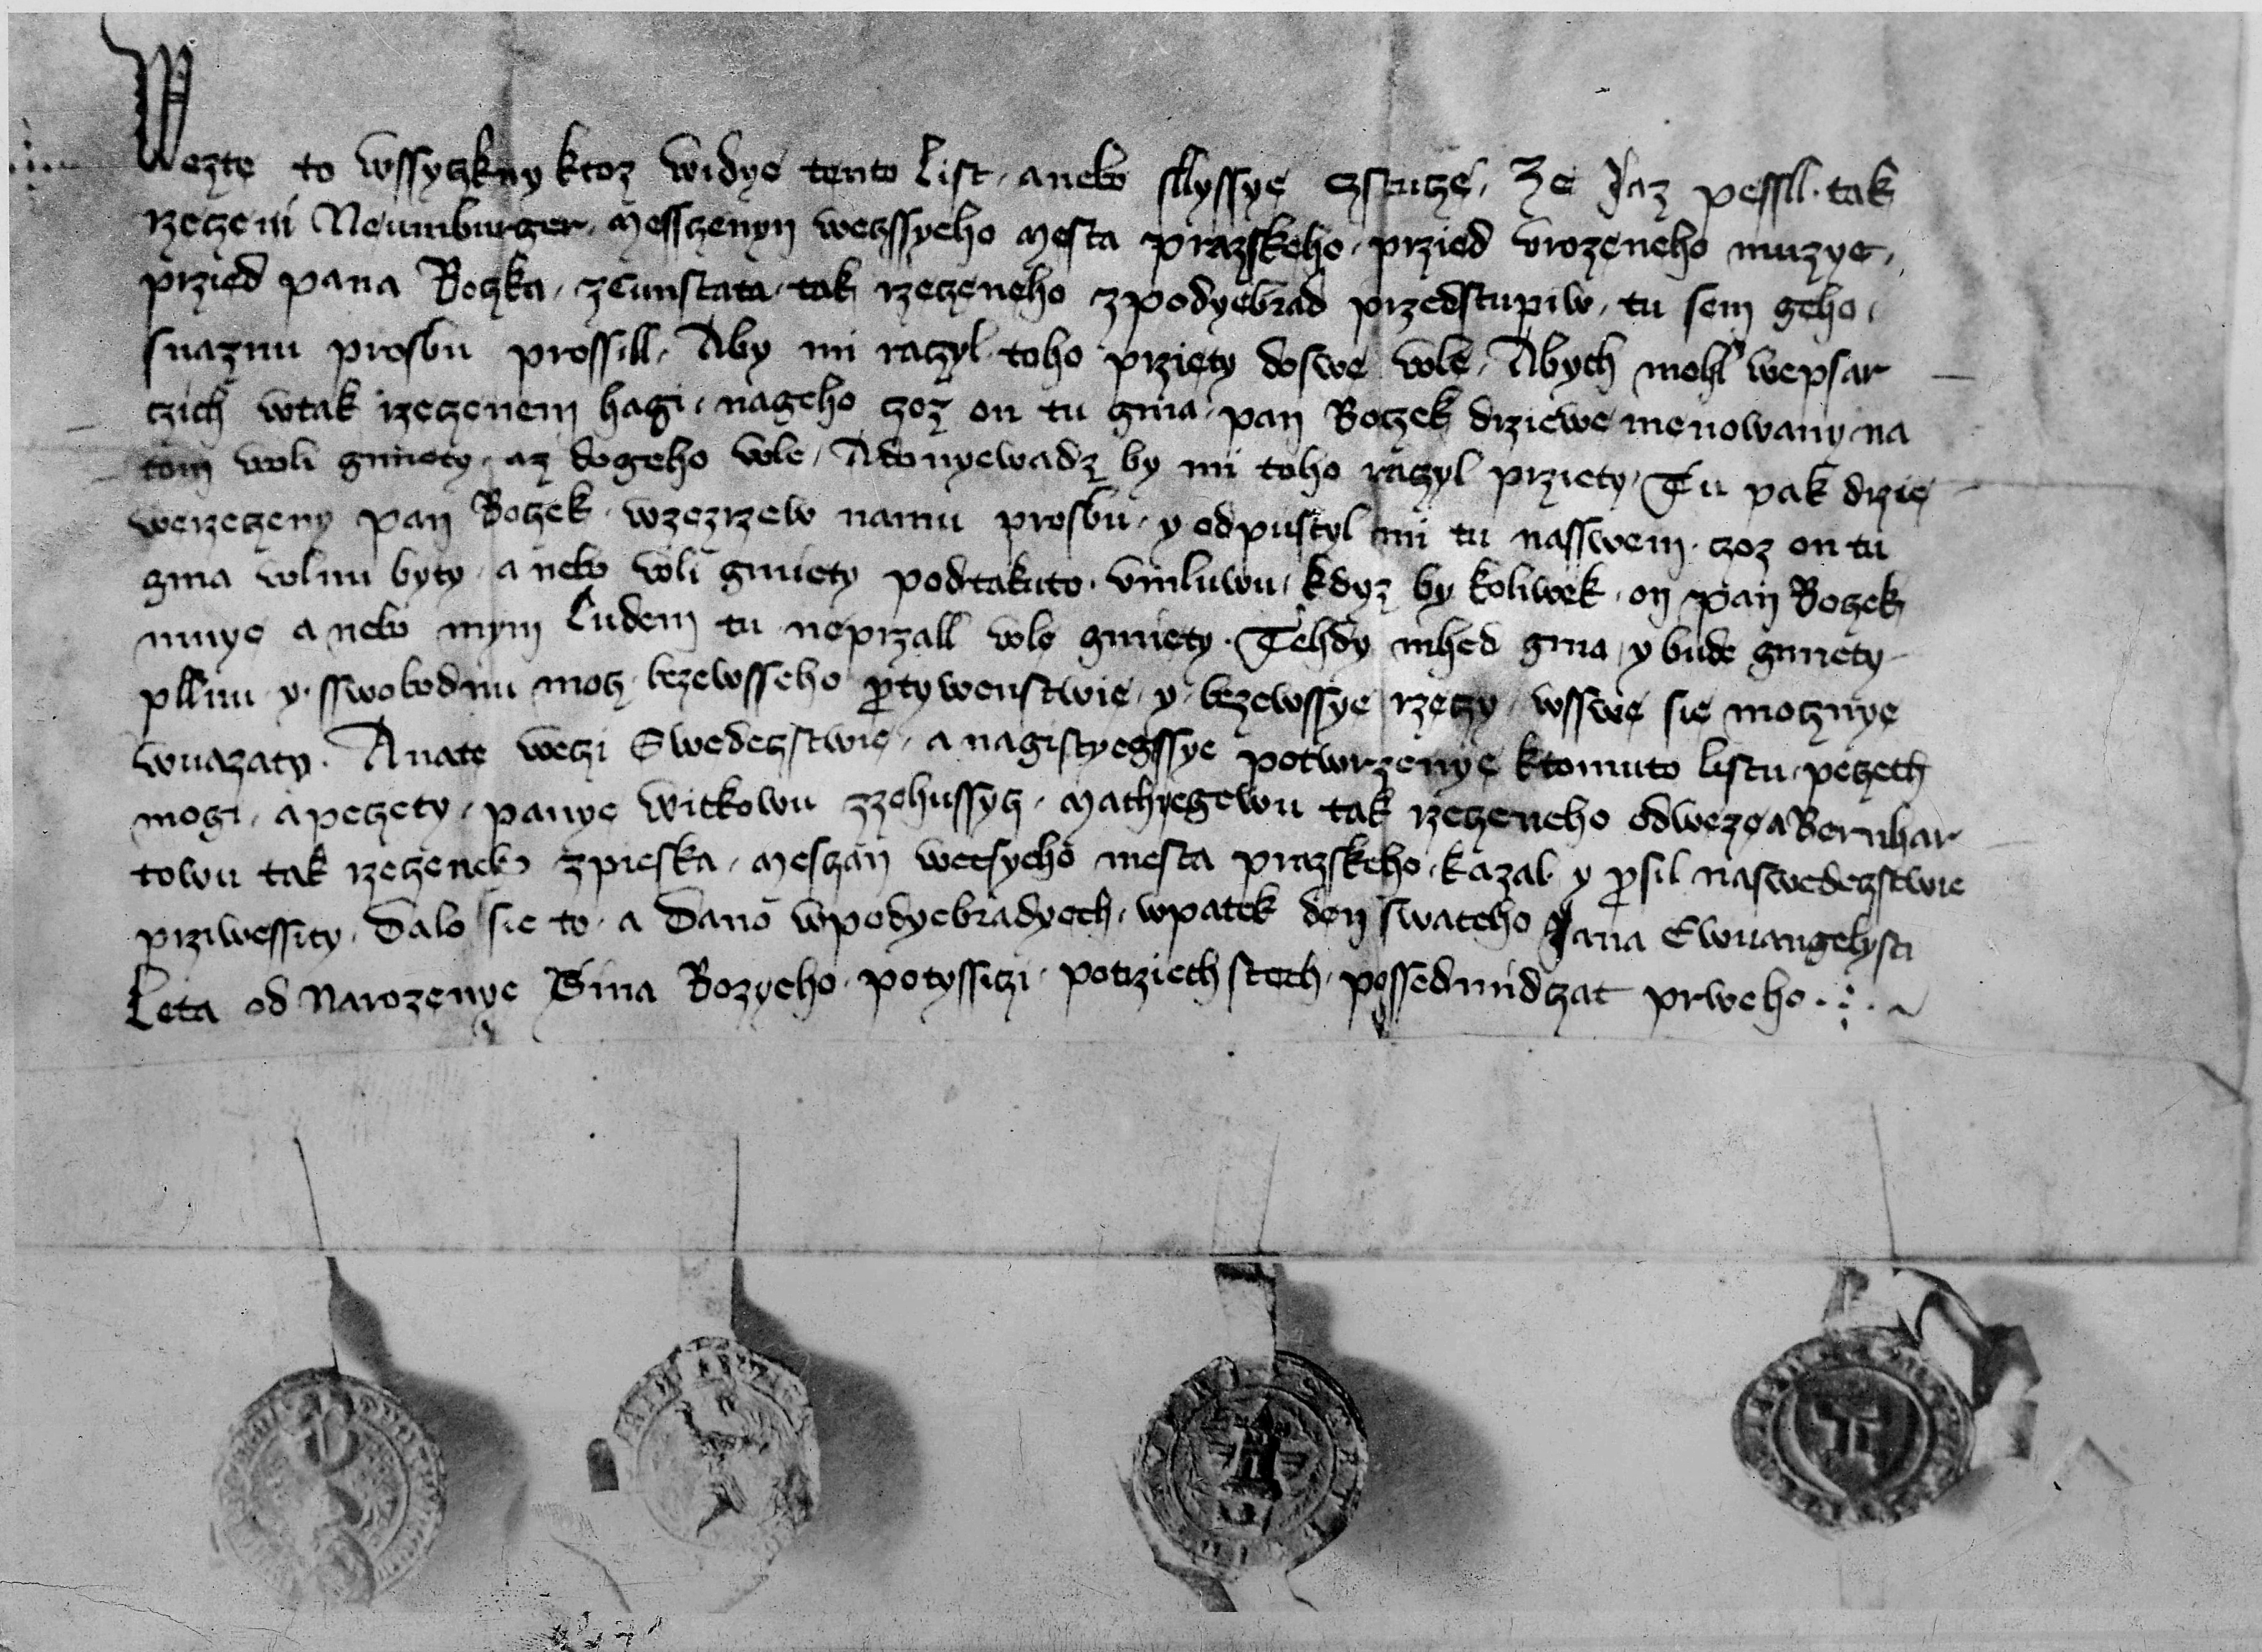 Wezte to wssyczkny ktoz widye tento list, anebo sllyssye cztucze, Ze Jaz pessll. tak
rzeczeni Neumburger, Messczenyn weczssyeho Mesta prazskeho, przied vrozeneho muzye,
przied pana Boczka, zCunstata tak rzeczeneho zpodyebrad przedstupiw, tu sem geho,
snaznu prosbu prossill, Aby mi raczyl toho prziety doswe wole, Abych mohl wepsar
czich wtak rzeczenem hagi, nageho czoz on tu gma, pan Boczek drziewe menowany na
tom woli gmiety, az dogeho wole, Adonyewadz by mi toho raczyl prziety, Tu pak drzie
werzeczeny pan Boczek, wzezrzew namu prosbu, y odpustyl mi tu nasswem, czoz on tu
gma wolnu byty, a nebo woli gmiety podtakuto, vmluwu, kdyz by koliwek, on pan Boczek
mnye a nebo mym Ludem tu neprzall wole gmiety. Tehdy inhed gma, y bude gmiety
pllnu y. sswobodnu mocz, bezewsseho ptywenstwie, y, bezewssye rzeczy, wsswe sie mocznye
wuazaty. Anate weczi Swedeczstwie, a nagistyegssye potwrzenye ktomuto listu, peczeth
mogi, apeczety, panye witkowu zzehussycz, Mathyegewu tak rzeczeneho odweze a Bernhar
towu tak rzeczeneho zpieska, Mesczan wetsyeho mesta prazskeho, kazal y psil naswedeczstwie
przi wessity, Dalo sie to, a Dano wpodyebradyech, wpatek den swateho Jana Ewuangelysti
Leta od Narozenye Sina Bozyeho, potyssiczi, potrziech stech, possedmidczat prweho.